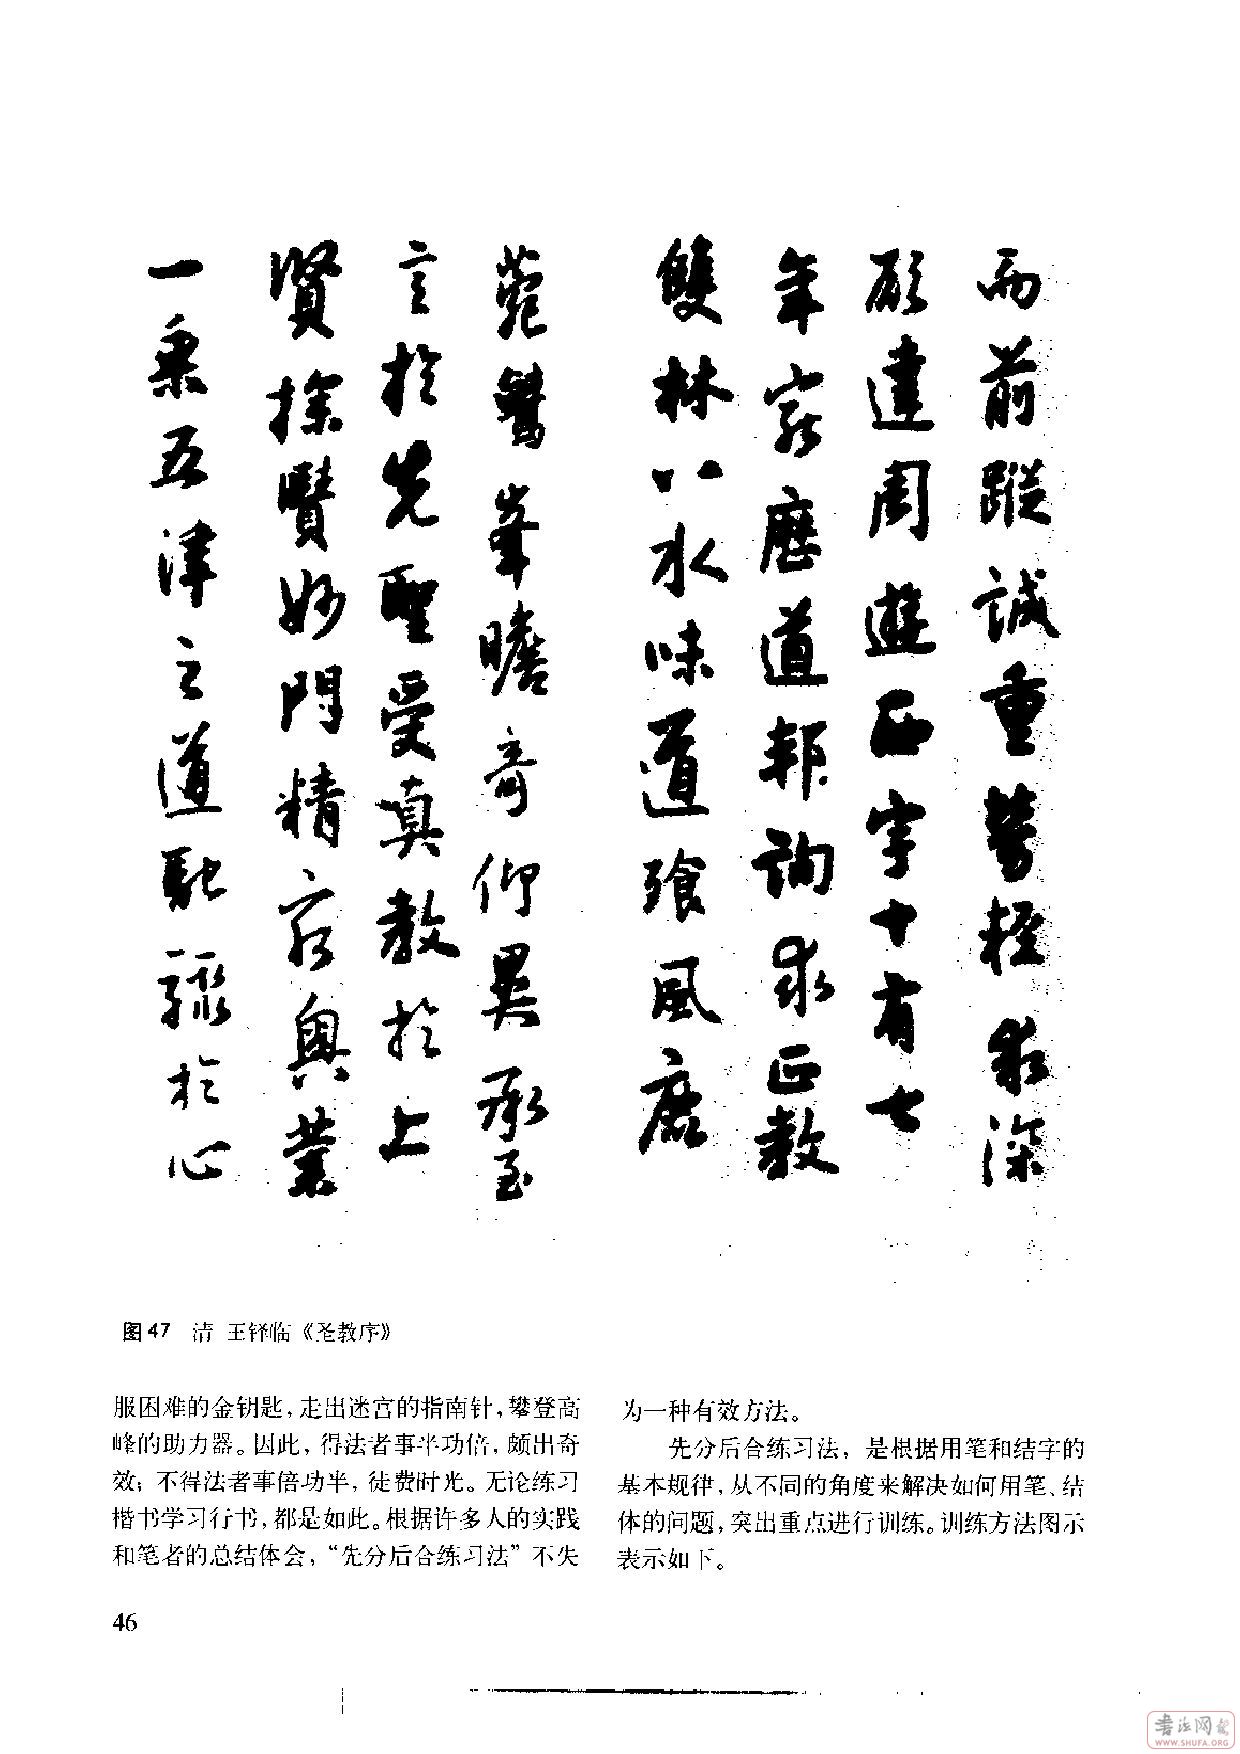 而前蹤誠重勞輕求深
願達周遊西宇十有七
年窮歷道邦詢求正教
雙林八水味道飡風鹿
菀鷲峯瞻奇仰異承至
言於先聖受真教於上
賢探賾妙門精窮奧業
一乘五津之道馳驟於心
图47 清 王铎临《圣教序》
服困难的金钥匙,走出迷宫的指南针,攀登高
峰的助力器。因此,得法者事半功倍,颇出奇
效;不得法者事倍功半,徒费时光。无论练习
楷书学习行书,都是如此。根据许多人的实践
和笔者的总结体会,“先分后合练习法”不失
为一种有效方法。
先分后合练习法,是根据用笔和结字的
基本规律,从不同的角度来解决如何用笔、结
体的问题,突出重点进行训练。训练方法图示
表示如下。
46
书法网
WWW.SHUFA.ORG